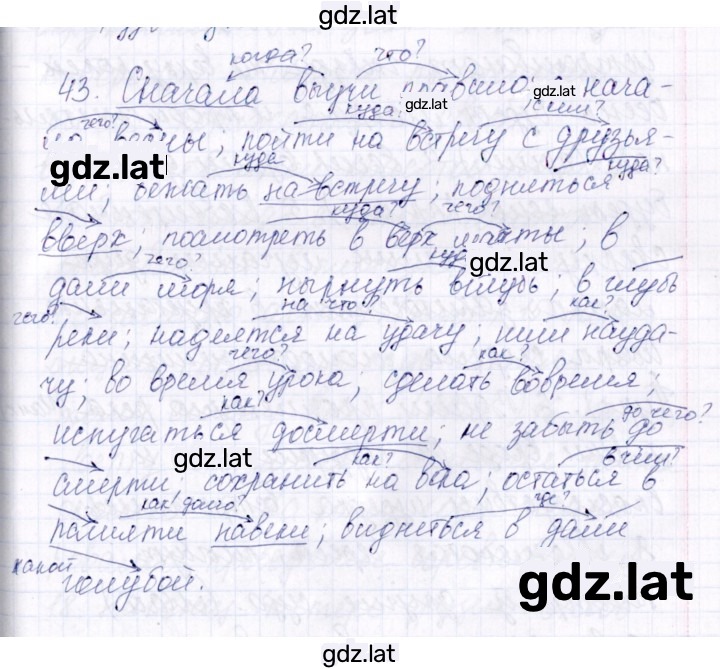 gdz.lat
когда? что?
43. Сначала выучи правило; нача-
gdz.lat gdz.lat
чего? куда? с кем?
ло войны; пойти на встречу с друзья-
gdz.lat
куда куда?
ми; бежать навстречу; подняться
куда? чего?
вверх; посмотреть в верх мачты; в
gdz.lat
чего? куд
дали моря; нырнуть вглубь; в глубь
чего? на что? как?
реки; надеятся на удачу; ити науда-
чего? как?
чу; во время урока; сделать вовремя;
как? до чего?
испугаться досмерти; не забыть до
gdz.lat
как? в чём?
смерти; сохранить на века; остаться в
как долго? где?
памяти навеки; виднеться в дали
какой
голубой.
gdz.lat
gdz.lat